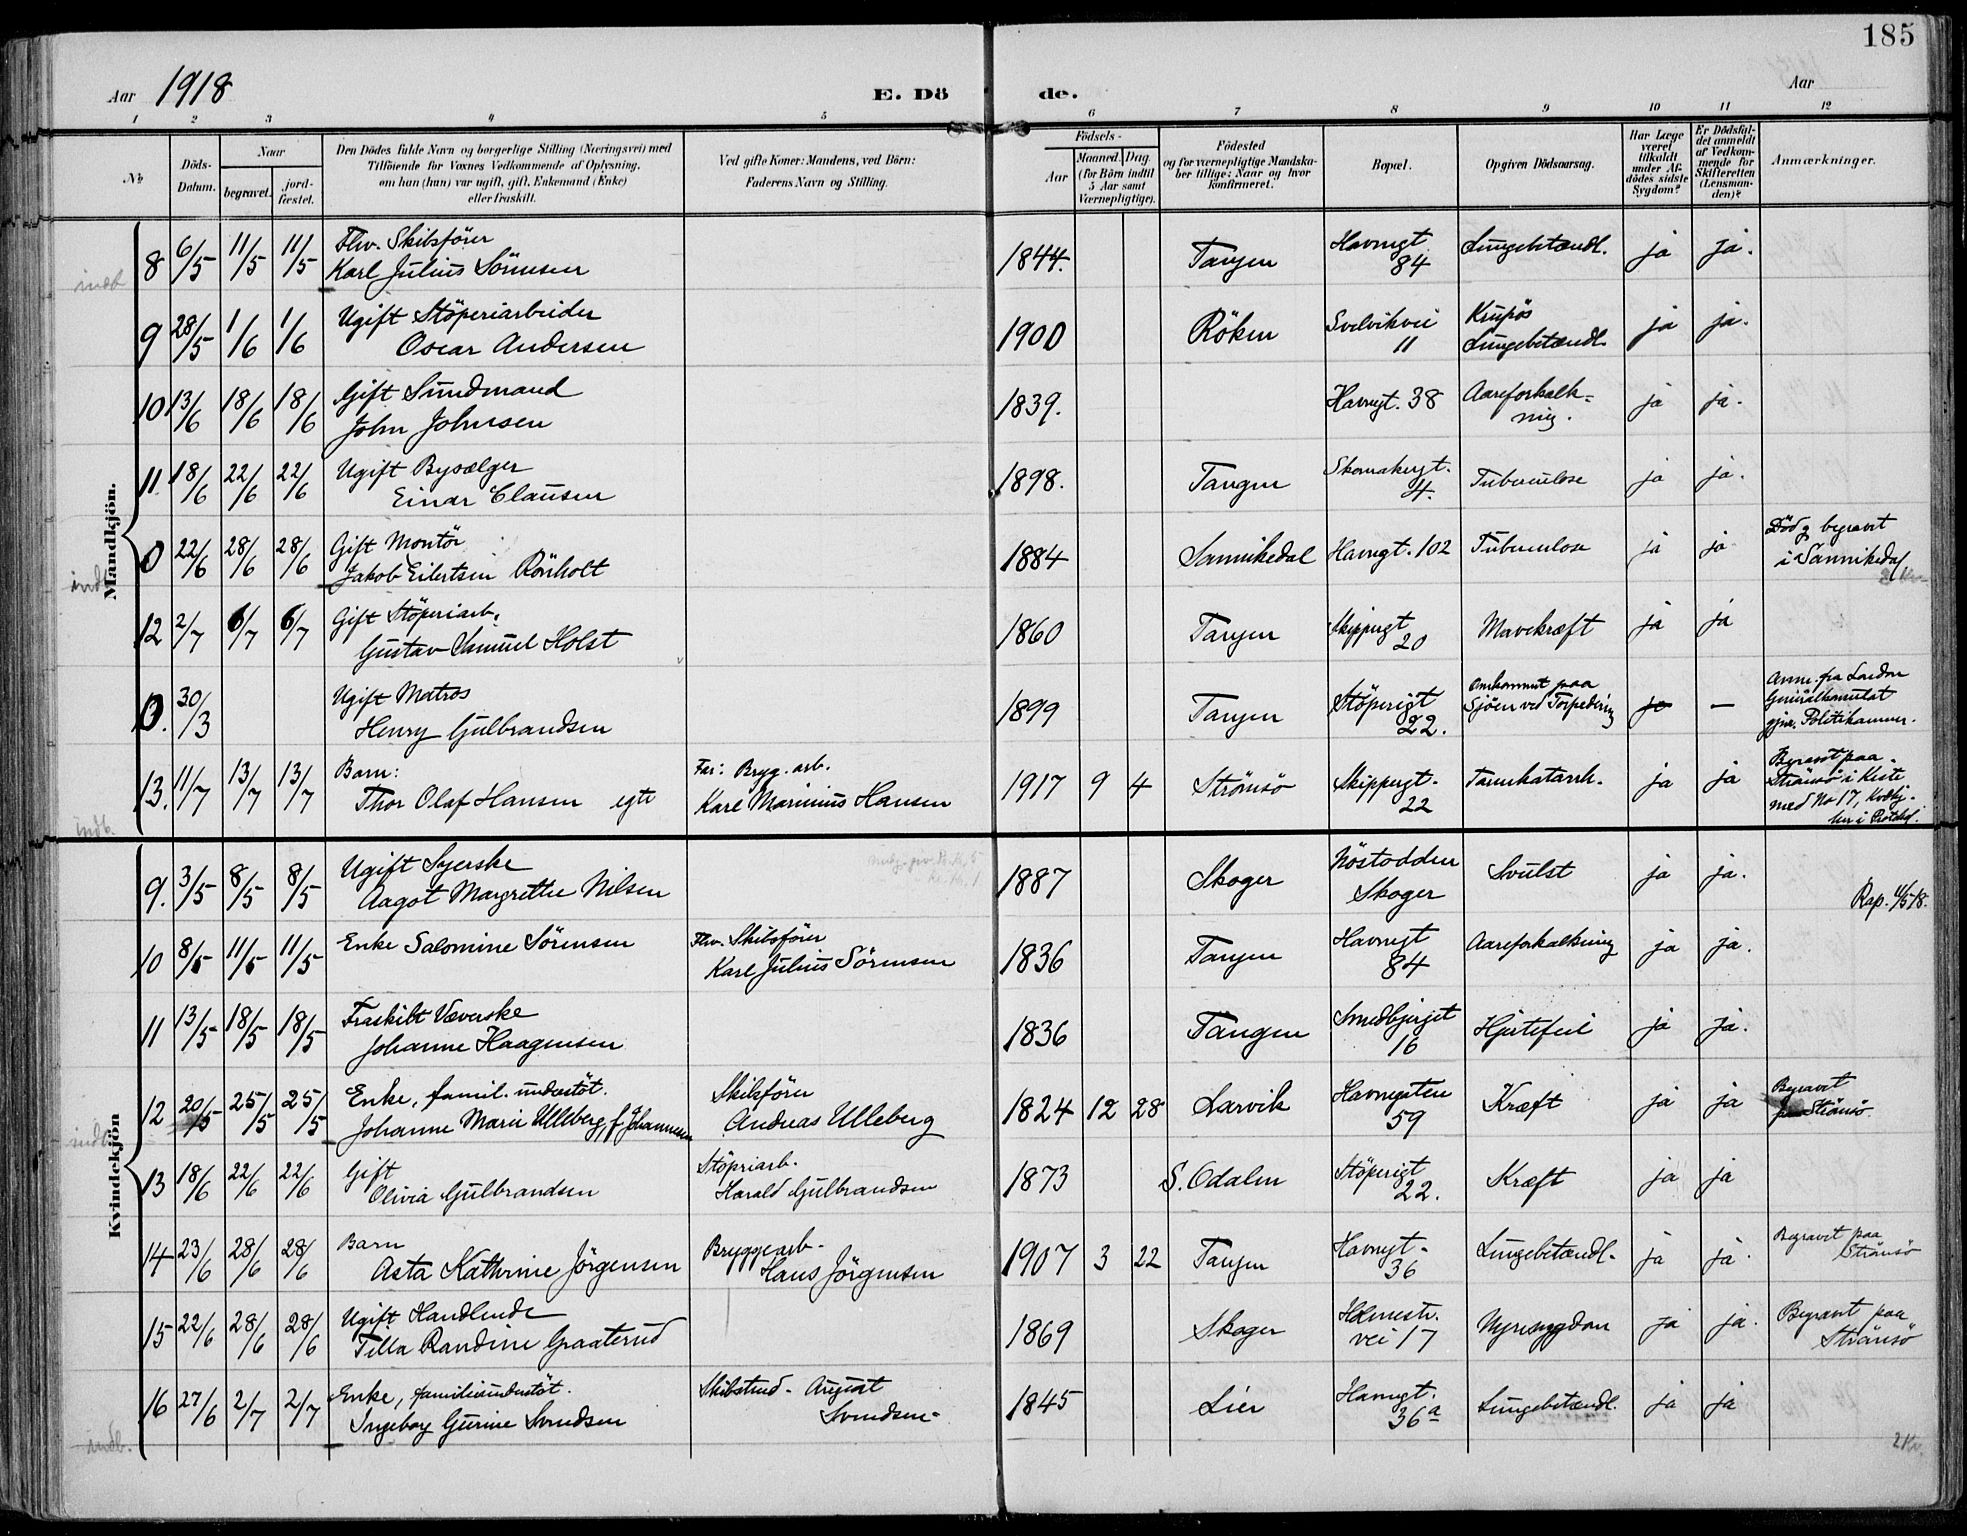 185
Aar 1918
E. Dö
de.
Aar
1 2 3 4 5 6 7 8 9 10 11 12
No
Döds-Datum.
Naar
begravet.
jord-fæstet.
Den Dödes fulde Navn og borgerlige Stilling (Næringsvei) med
Tilföiende for Voxnes Vedkommende af Oplysning,
om han (hun) var ugift, gift, Enkemand (Enke)
eller fraskilt.
Ved gifte Koner: Mandens, ved Börn:
Faderens Navn og Stilling.
Födsels-
Aar
Maaned. Dag.
(for Börn indtil
5 Aar samt
Værnepligtige).
Födested
og for værnepligtige Mandska-
ber tillige: Naar og hvor
konfirmeret.
Bopæl.
Opgiven Dödsaarsag.
Har Læge
været
tilkaldt
under Af-
dödes sidste
Sygdom?
Er Dödsfal-
det anmeldt
af Vedkom-
mende for
Skifteretten
(Lensman-
den)?
Anmærkninger.
Mandkjön.
8 6/5 11/5 11/5 Fhv. Skibsförer
Karl Julius Sörensen 1844. Tangen Havnegt. 84 Lungebetændl. ja ja.
indb
9 28/5 1/6 1/6 Ugift Stöperiarbeider
Oscar Andersen 1900 Röken Svelvikvei 11 Krupös
Lungebetændl. ja ja.
10 13/6 18/6 18/6 Gift Sundmand
John Johnsen 1839. Havnegt. 38 Aareforkalk-
ning. ja ja.
11. 18/6 22/6 22/6 Ugift Bysælger
Einar Clausen 1898. Tangen Skomakergt. 4. Tuberculose ja ja.
0 22/6 28/6 28/6 Gift Montör
Jakob Eilertsen Rönholt 1884 Sannikedal Havnegt. 102 Tuberculose ja ja Död og begravet
i Sannikedal
indb
12 2/7 6/7 6/7 Gift Stöperiarb.
Gustav Samuel Holst 1860 Tangen Skippergt 20 Mavekræft ja ja
0. 30/3 Ugift Matros
Henry Gulbrandsen 1899 Tangen Stöperigt 22. Omkommet paa
Sjöen ved Torpedering ja — Anm. fra London
Generalkonsulat
gjen. Politikammer.
13. 11/7 13/7 13/7 Barn:
Thor Olaf Hansen egte Far: Bryg. arb.
Karl Marinius Hansen 1917 9 4 Strömsö Skippergt. 22 Tarmkatarrh. ja ja Begravet paa
Strömsö i Kiste
med No 17, Kvdkj.
her i Protokol.
indb.
Kvindekjön
9. 3/5 8/5 8/5 Ugift Syerske
Aagot Margrethe Nilsen 1887 Skoger Nöstodden
Skoger Svulst ja ja. Rap. 4/5 18.
10 8/5 11/5 11/5 Enke Salomine Sörensen Fhv. Skibsförer
Karl Julius Sörensen 1836 Tangen Havnegt 84 Aareforkalkning ja ja.
11 13/5 18/5 18/5 Fraskilt Væverske
Johanne Haagensen 1836 Tangen Smedbjerget 16 Hjertefeil ja ja.
12 20/5 25/5 25/5 Enke, famil. understöt.
Johanne Marie Ulleberg, f. Johannesen Skibsförer
Andreas Ulleberg 1824 12 28 Larvik Havnegaten 59 Kræft ja ja Begravet
paa Strömsö
indb
13 18/6 22/6 22/6 Gift
Olivia Gulbrandsen Stöperiarb.
Harald Gulbrandsen 1873 S. Odalen Stöperigt 22. Kræft ja ja
14 23/6 28/6 28/6 Barn
Asta Kathrine Jörgensen Bryggearb.
Hans Jörgensen 1907 3 22 Tangen Havnegt. 36 Lungebetændl. ja ja. Begravet paa
Strömsö
15 22/6 28/6 28/6 Ugift Handlende
Tilla Randine Graaterud 1869 Skoger Holmestr.
vei 17 Nyresygdom ja ja. Begravet paa
Strömsö
16 27/6 2/7 2/7 Enke, familieunderstöt.
Ingeborg Gurine Svendsen Skibstmd. August
Svendsen 1845 Lier Havnegt. 36a Lungebetændl. ja ja
indb. 2 Kr.